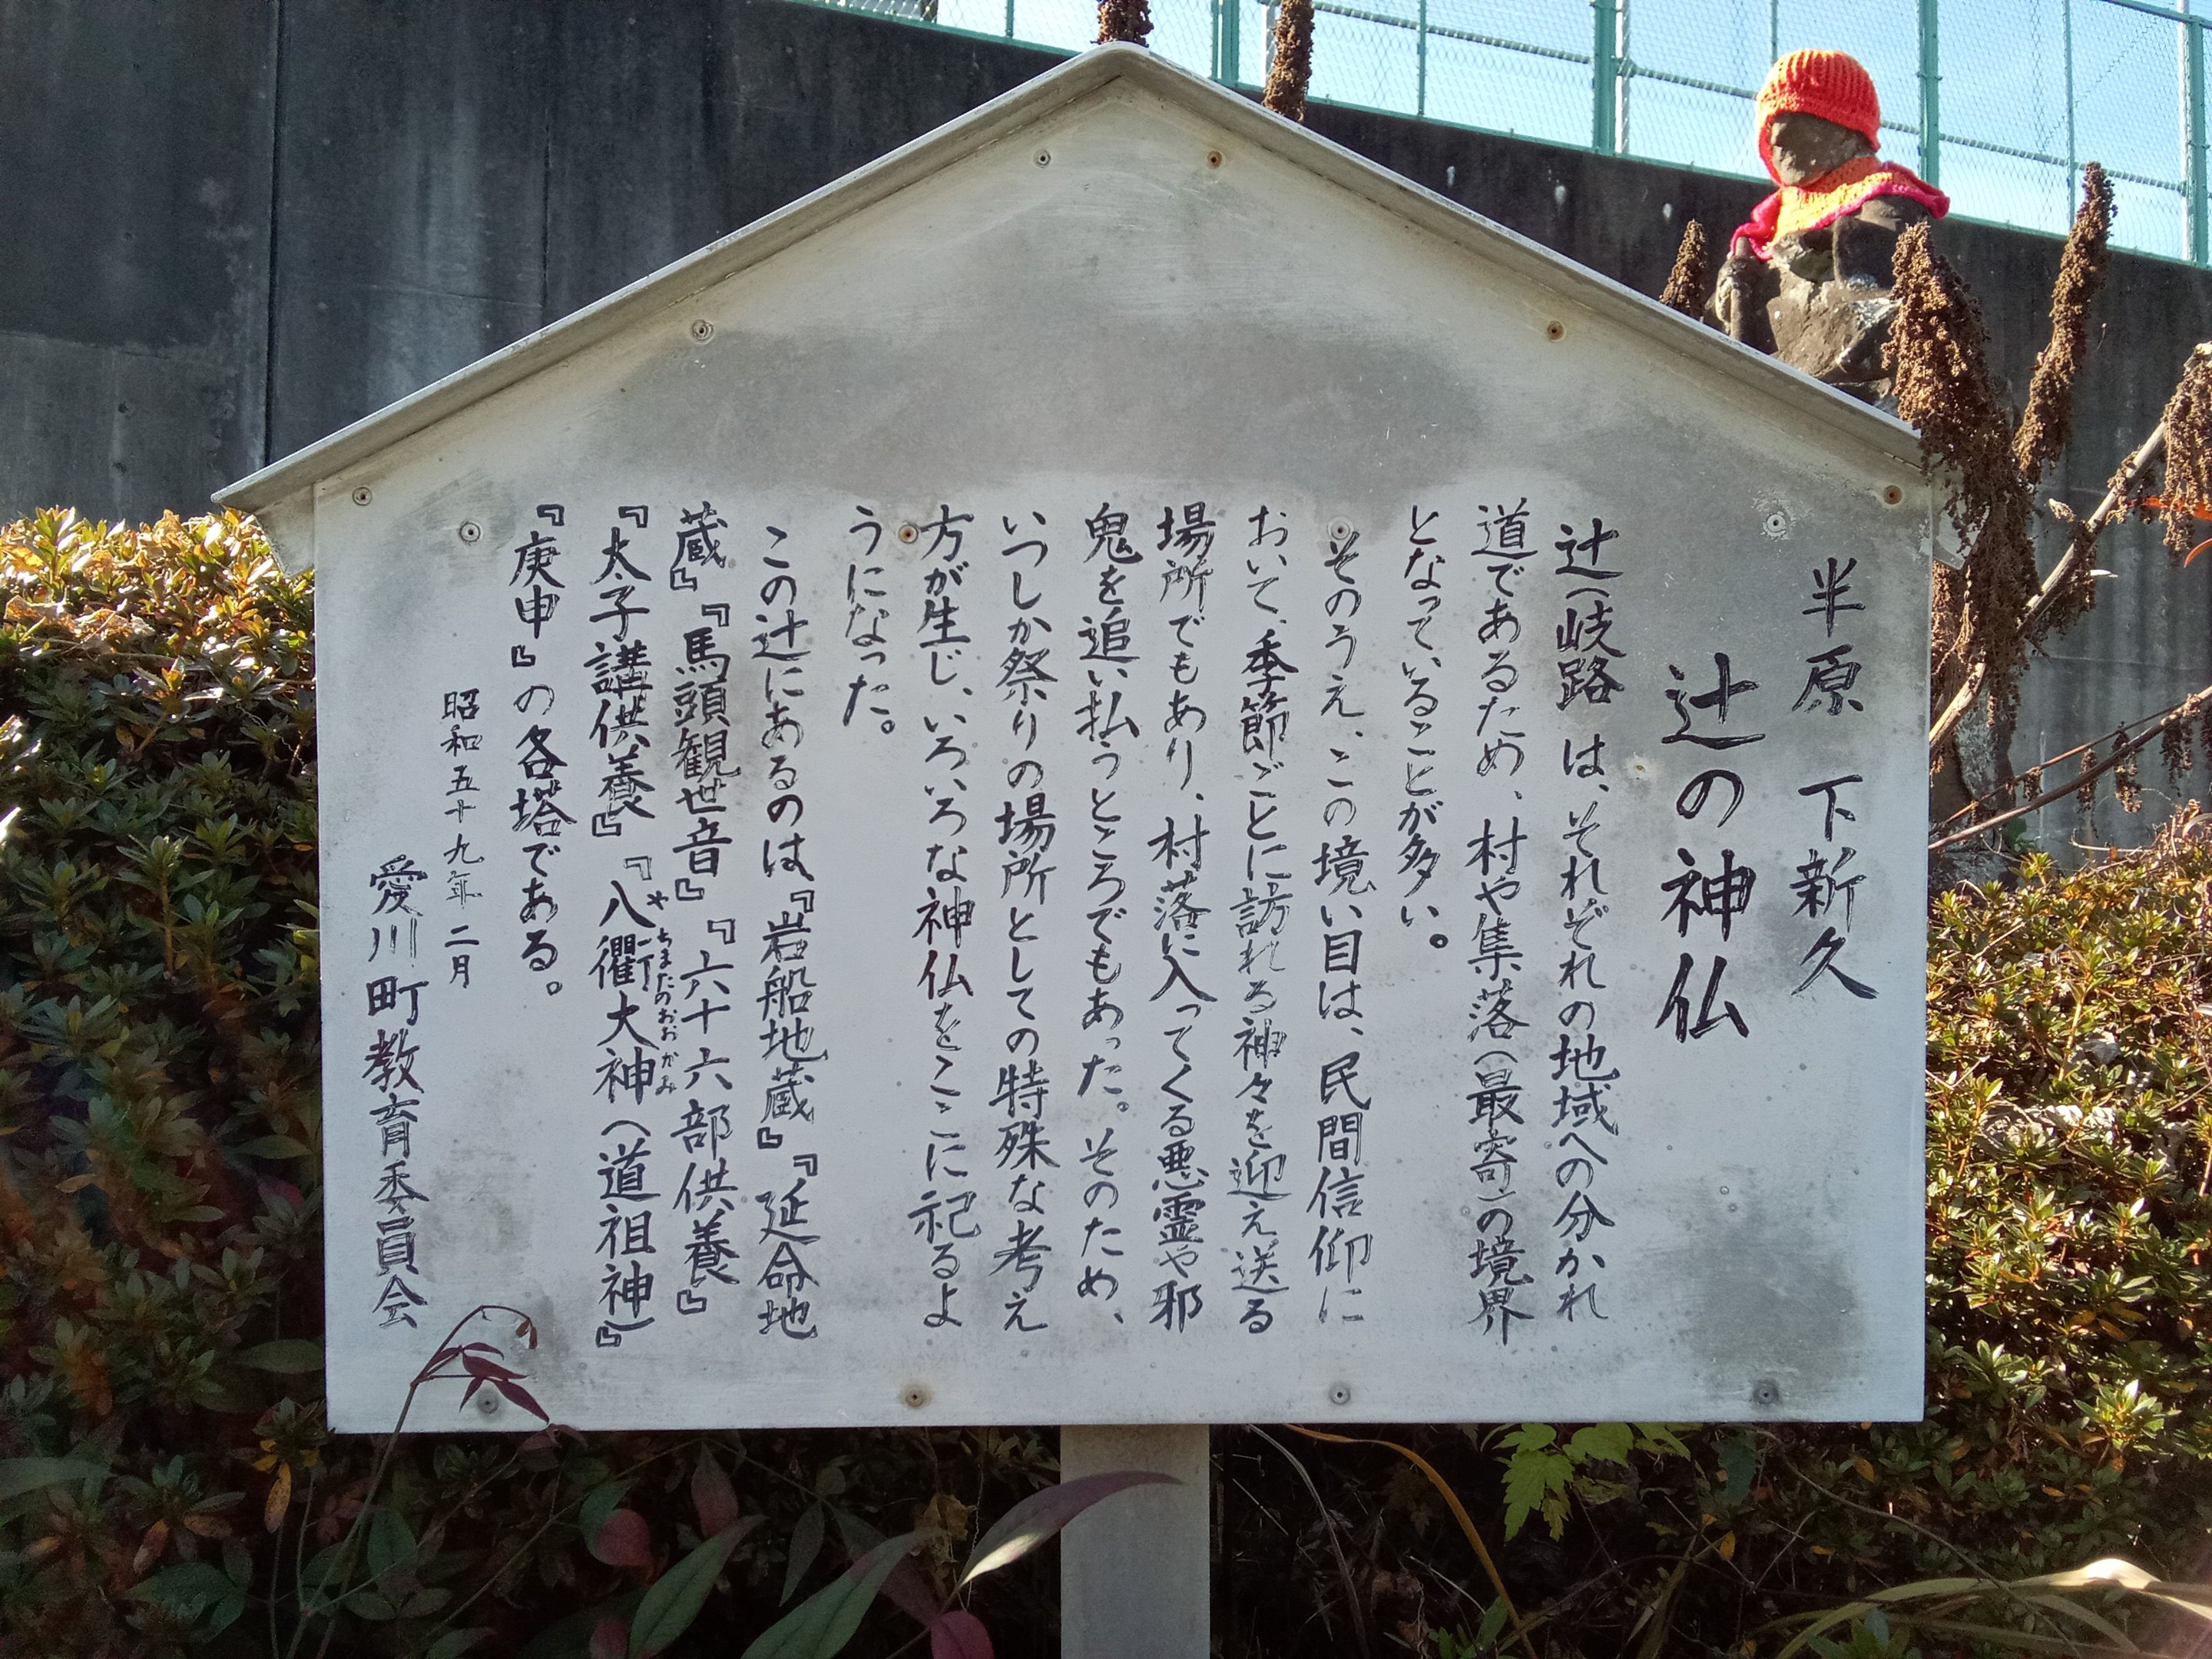 半原 下新久
辻の神仏
辻(岐路)は、それぞれの地域への分かれ
道であるため、村や集落(最寄)の境界
となっていることが多い。
そのうえ、この境い目は、民間信仰に
おいて、季節ごとに訪れる神々を迎え送る
場所でもあり、村落に入ってくる悪霊や邪
鬼を追い払うところでもあった。そのため、
いつしか祭りの場所としての特殊な考え
方が生じ、いろいろな神仏をここに祀るよ
うになった。
この辻にあるのは『岩船地蔵』『延命地
蔵』『馬頭観世音』『六十六部供養』
『太子講供養』『八衢大神(道祖神)』
やちまたのおおがみ
『庚申』の各塔である。
昭和五十九年二月
愛川町教育委員会